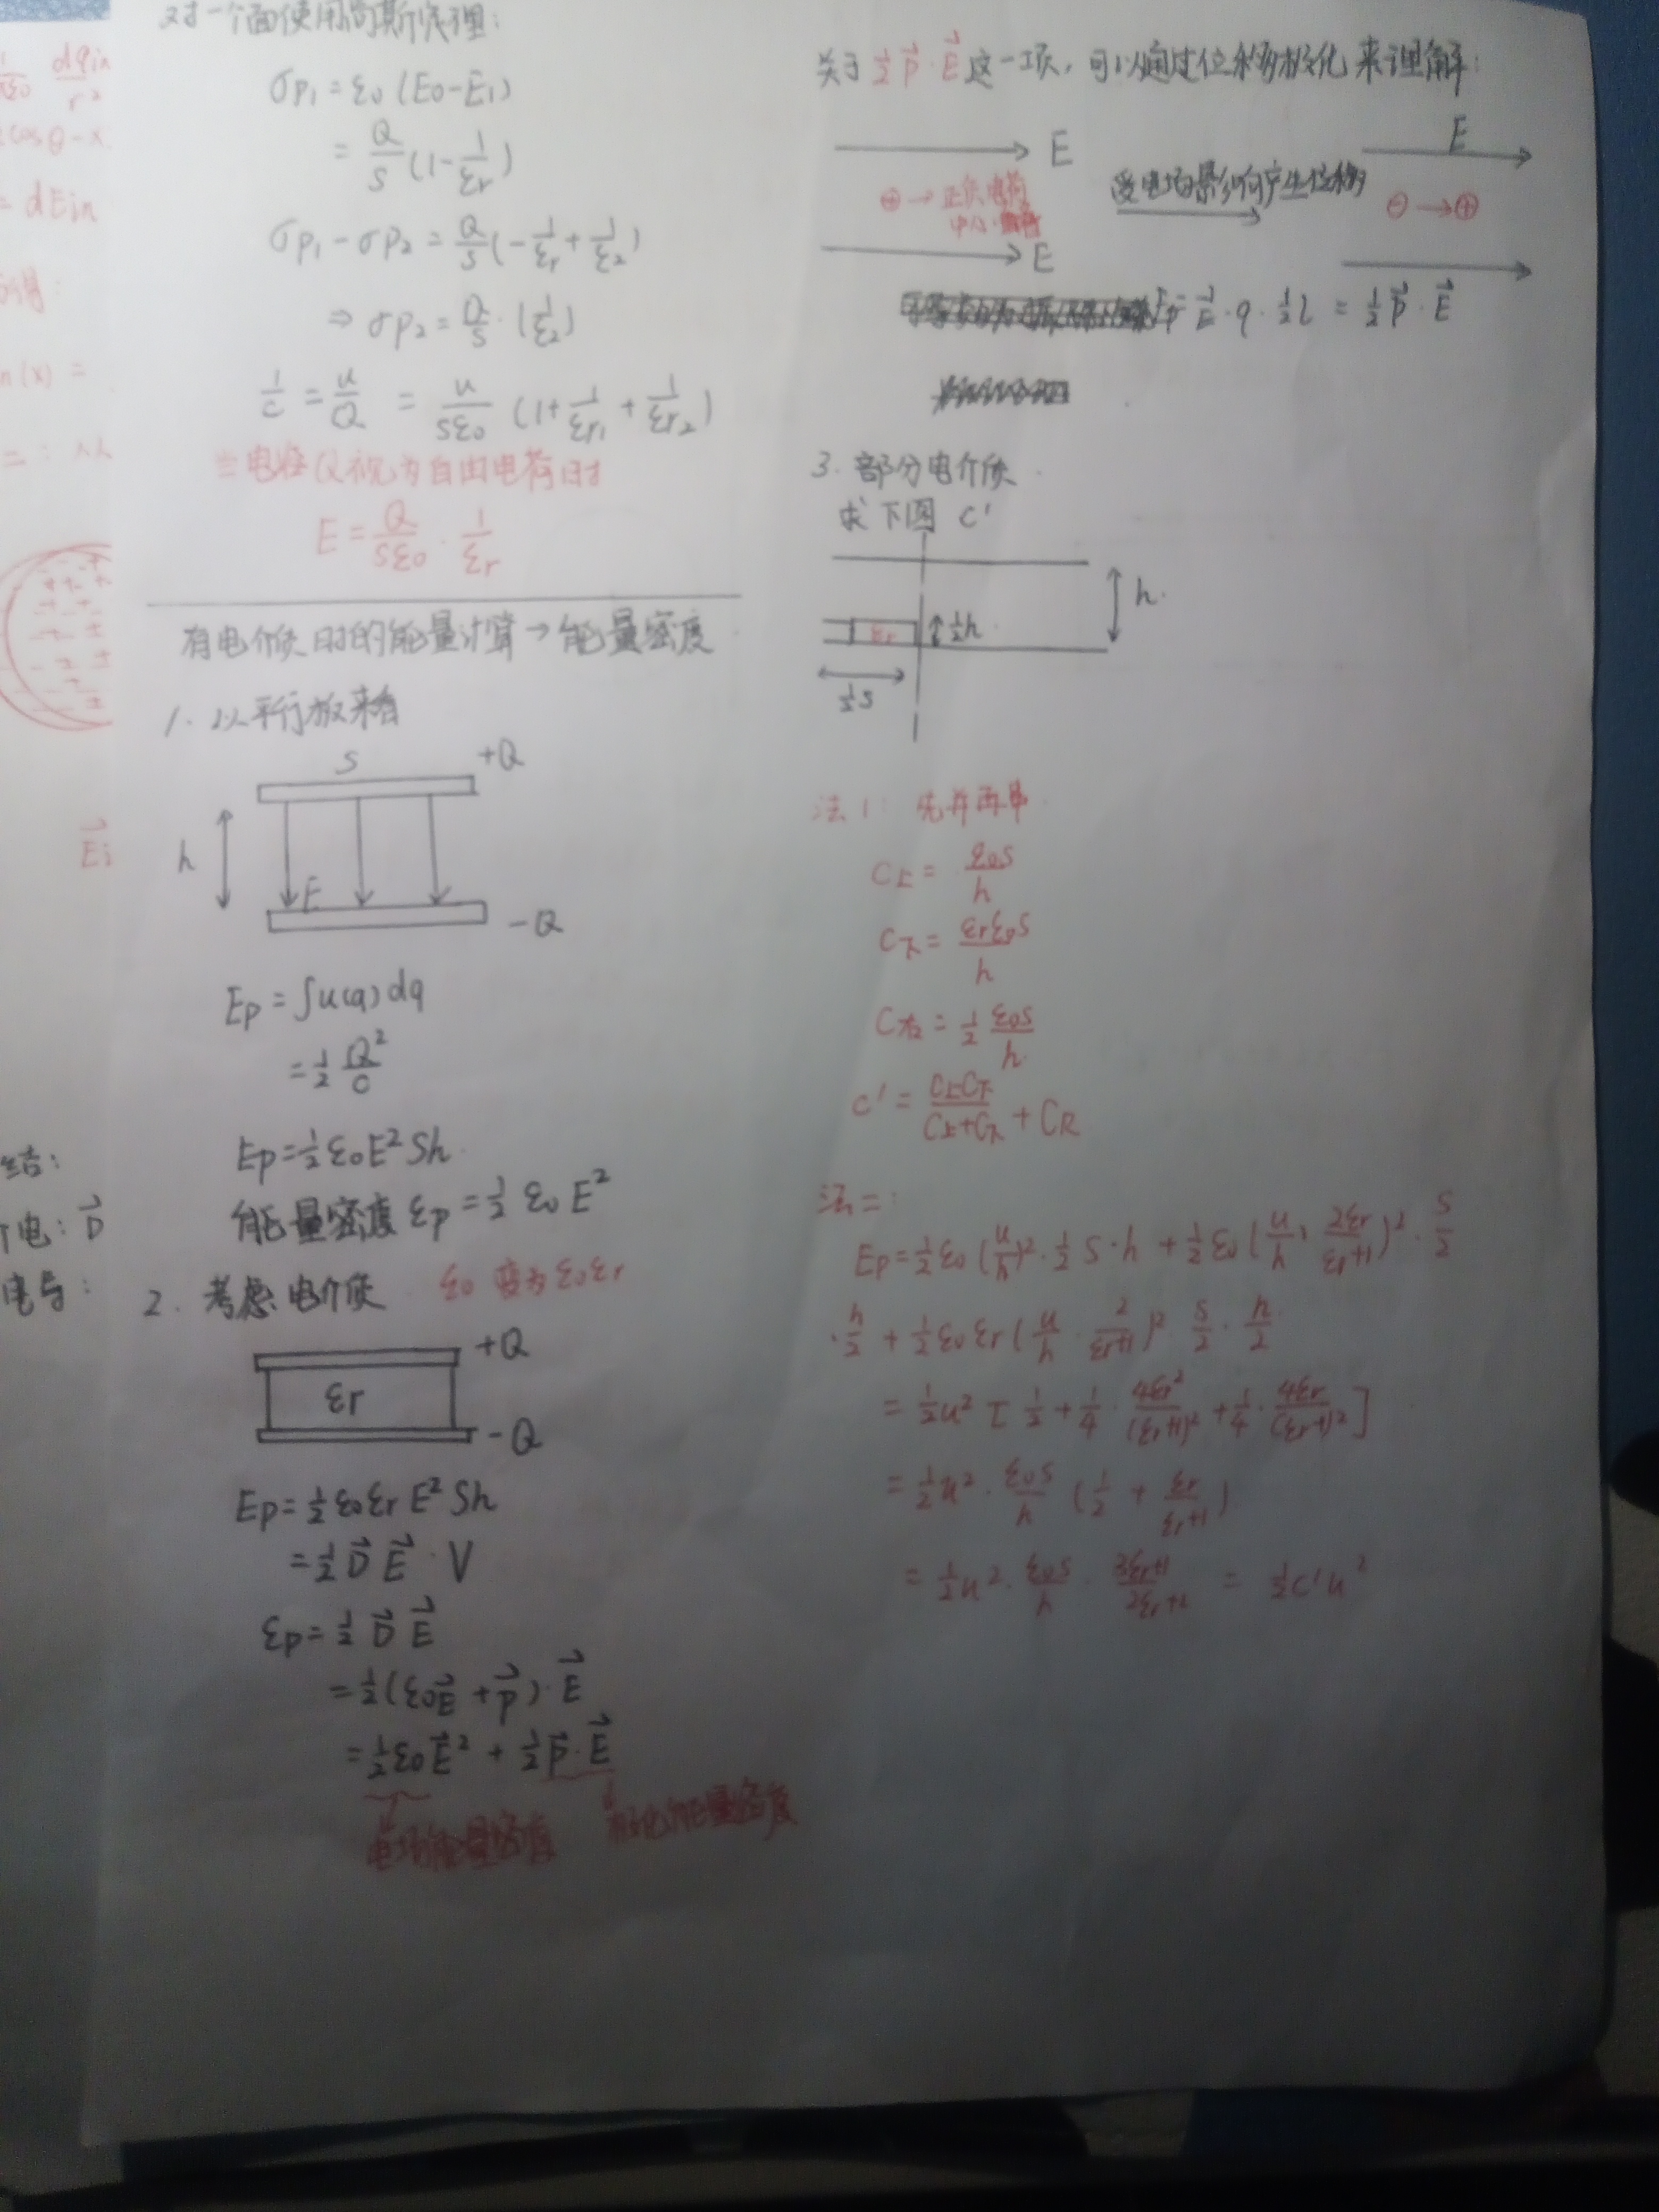 对一个面使用高斯定理:
σp₁ = ε₀ (E₀-E₁)
= Q/S (1-1/εr)
σp₁ - σp₂ = Q/S (-1/εr + 1/ε₂)
⇒ σp₂ = Q/S · (1/ε₂)
1/C = u/Q = u/Sε₀ (1+1/εr₁ + 1/εr₂)
Q视为自由电荷时
E = Q/Sε₀ · 1/εr
有电介质时的能量计算→能量密度
1. 以平行板来看
S
+Q
h
E
-Q
Ep = ∫u(q)dq
= ½ Q²/C
Ep = ½ε₀E²Sh
能量密度 εp = ½ ε₀E²
2. 考虑电介质 ε₀变为ε₀εr
+Q
εr
-Q
Ep = ½ε₀εrE²Sh
= ½D⃗E⃗·V
εp = ½D⃗E⃗
= ½(ε₀E⃗+P⃗)·E⃗
= ½ε₀E⃗² + ½P⃗·E⃗
电场能量密度 极化能量密度
关于½P⃗·E⃗这一项,可以通过位移极化来理解:
E
E
⊕→正负电荷
中心
受电场影响产生位移
⊖→⊕
E
Ep = E⃗·q·½l = ½P⃗·E⃗
3. 部分电介质
求下图 C'
h
εr
½h
½S
法1: 先并再串
C上 = ε₀S/h
C下 = εrε₀S/h
C右 = ½ ε₀S/h
C' = C上C下/(C上+C下) + CR
法二:
Ep = ½ε₀(u/h)²·½S·h + ½ε₀(u/h · 2εr/(εr+1))²·S/2
·h/2 + ½ε₀εr(u/h · 2/(εr+1))² S/2 · h/2
= ½u² [½ + ¼·4εr²/(εr+1)² + ¼·4εr/(εr+1)²]
= ½u²·ε₀S/h (½ + εr/(εr+1))
= ½u²·ε₀S/h · (3εr+1)/(2εr+2) = ½C'u²
dqin
r²
cosθ-x
= dEin
n(x) =
E⃗i
结:
介电: D⃗
电导: